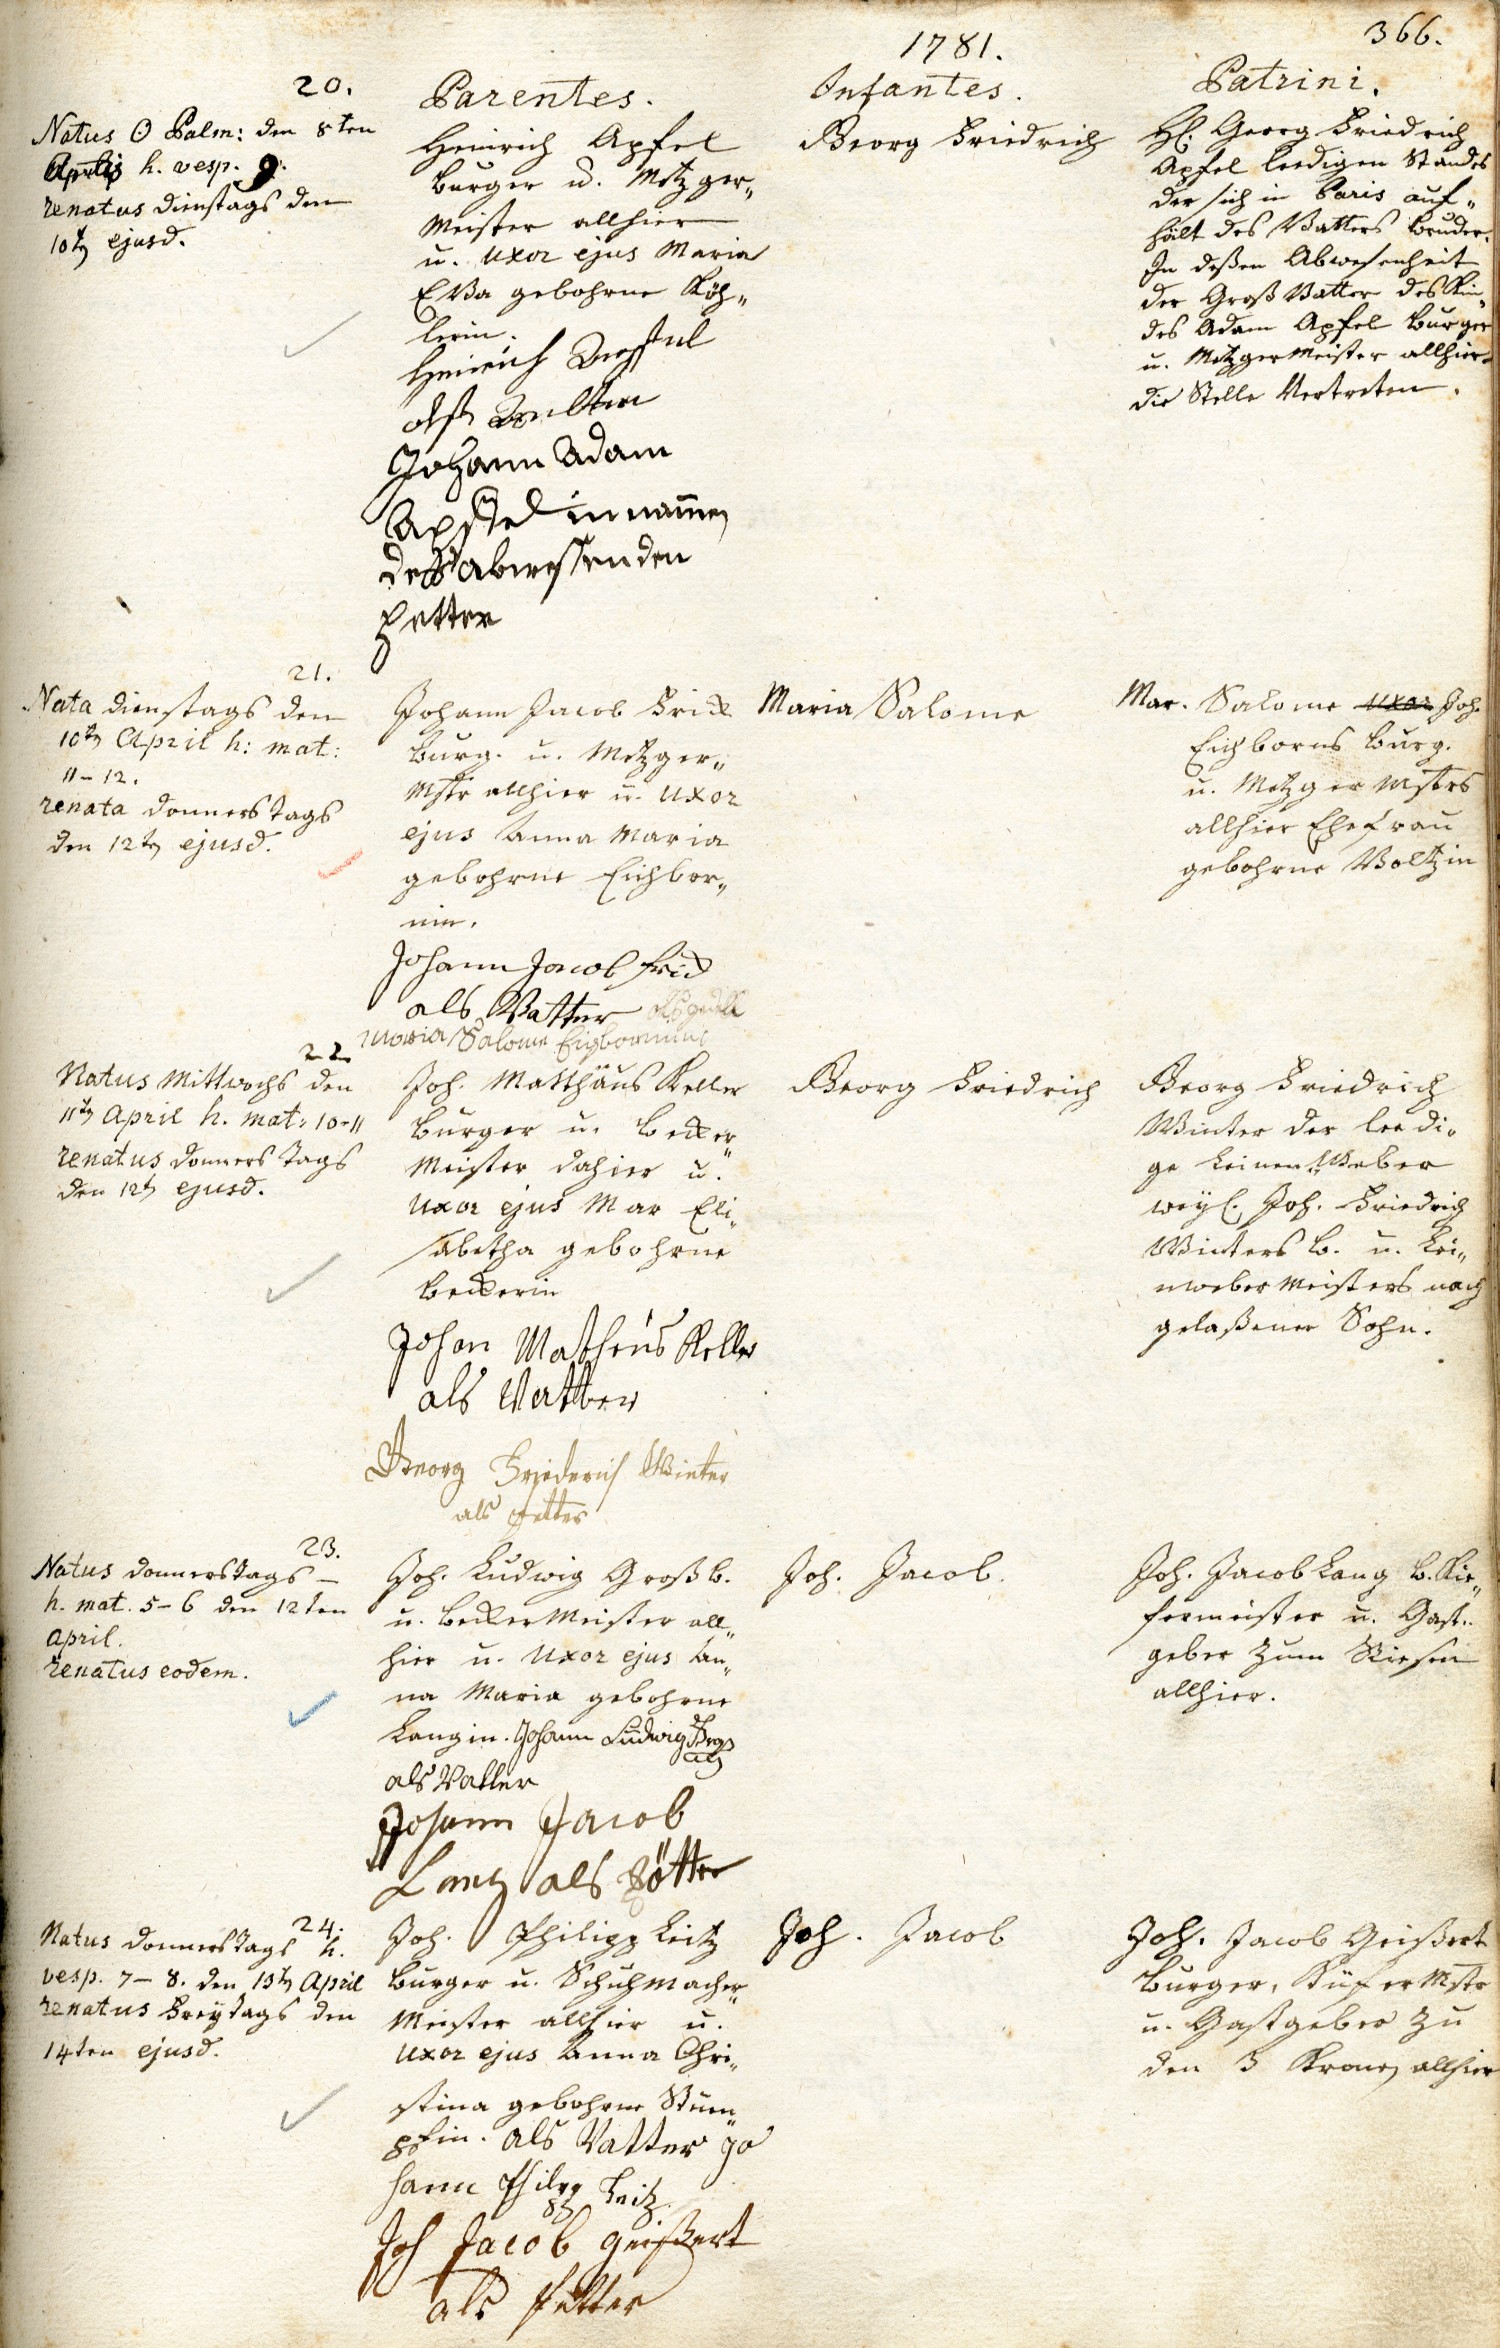 366.
1781.
Parentes.
Infantes.
Patrini.
20.
Natus ☉ Palm: den 8ten
Aprilis h. vesp. 9.
renatus Dienstags den
10ten ejusd.
Heinrich Apfel
burger u. Metzger„
Meister allhier
u. Uxor ejus Maria
Eva gebohrne Köh„
lerin.
Heinrich
Johann Adam
Apffel in namen
deß abwessenden
Petter
Georg Friedrich
H. Georg Friedrich
Apfel leedigen Standes
der sich in Paris auf„
hält des Vatters bruder.
In deßen Abwesenheit
der Groß Vatter des Kin„
des Adam Apfel burger
u. Metzger Meister allhier
die Stelle Vertretten.
21.
Nata Dienstags den
10ten April h: mat:
11–12.
renata Donnerstags
den 12ten ejusd.
Johann Jacob Frick
burg. u. Metzger„
Mstr allhier u. Uxor
ejus Anna Maria
gebohrne Eichbor„
nin.
Johann Jacob Frick
als Vatter
Maria Salome Eichbornin
Maria Salome
Mar. Salome uxor Joh.
Eichborns burg.
u. Metzger Mstrs
allhier Ehefrau
gebohrne Voltzin
22.
Natus Mittwochs den
11ten April h. mat: 10–11
renatus Donnerstags
den 12ten ejusd.
Joh. Matthäus Keller
burger u. becker„
Meister dahier u.
Uxor ejus Mar Eli„
sabetha gebohrne
beckerin
Johan Matheus Keller
als Vatter
Georg Friederich Winter
als Petter
Georg Friedrich
Georg Friedrich
Winter der leedi„
ge Leinen Weber
weyl. Joh. Friedrich
Winters b. u. Lei„
nweber Meisters nach
gelaßener Sohn.
23.
Natus Donnerstags –
h. mat. 5–6 den 12ten
April.
renatus eodem.
Joh. Ludwig Groß b.
u. becker Meister all„
hier u. Uxor ejus An„
na Maria gebohrne
Langin. Johann Ludwig
als Vatter
Johann Jacob
Lang als Pötter
Joh. Jacob.
Joh. Jacob Lang b. Kie„
fermeister u. Gast„
geber zum Riesen
allhier.
24.
Natus Donnerstags h.
vesp. 7–8. den 13ten April
renatus Freytags den
14ten ejusd.
Joh. Philipp Leitz
burger u. Schuhmacher„
Meister allhier u.
Uxor ejus Anna Chri„
stina gebohrne Stum„
pfin. als Vatter Jo
hann Philipp Leitz
Joh Jacob Geißert
als Petter
Joh. Jacob
Joh. Jacob Geißert
burger, Küfer Mstr
u. Gastgeber zu
den 3 Kronen allhier